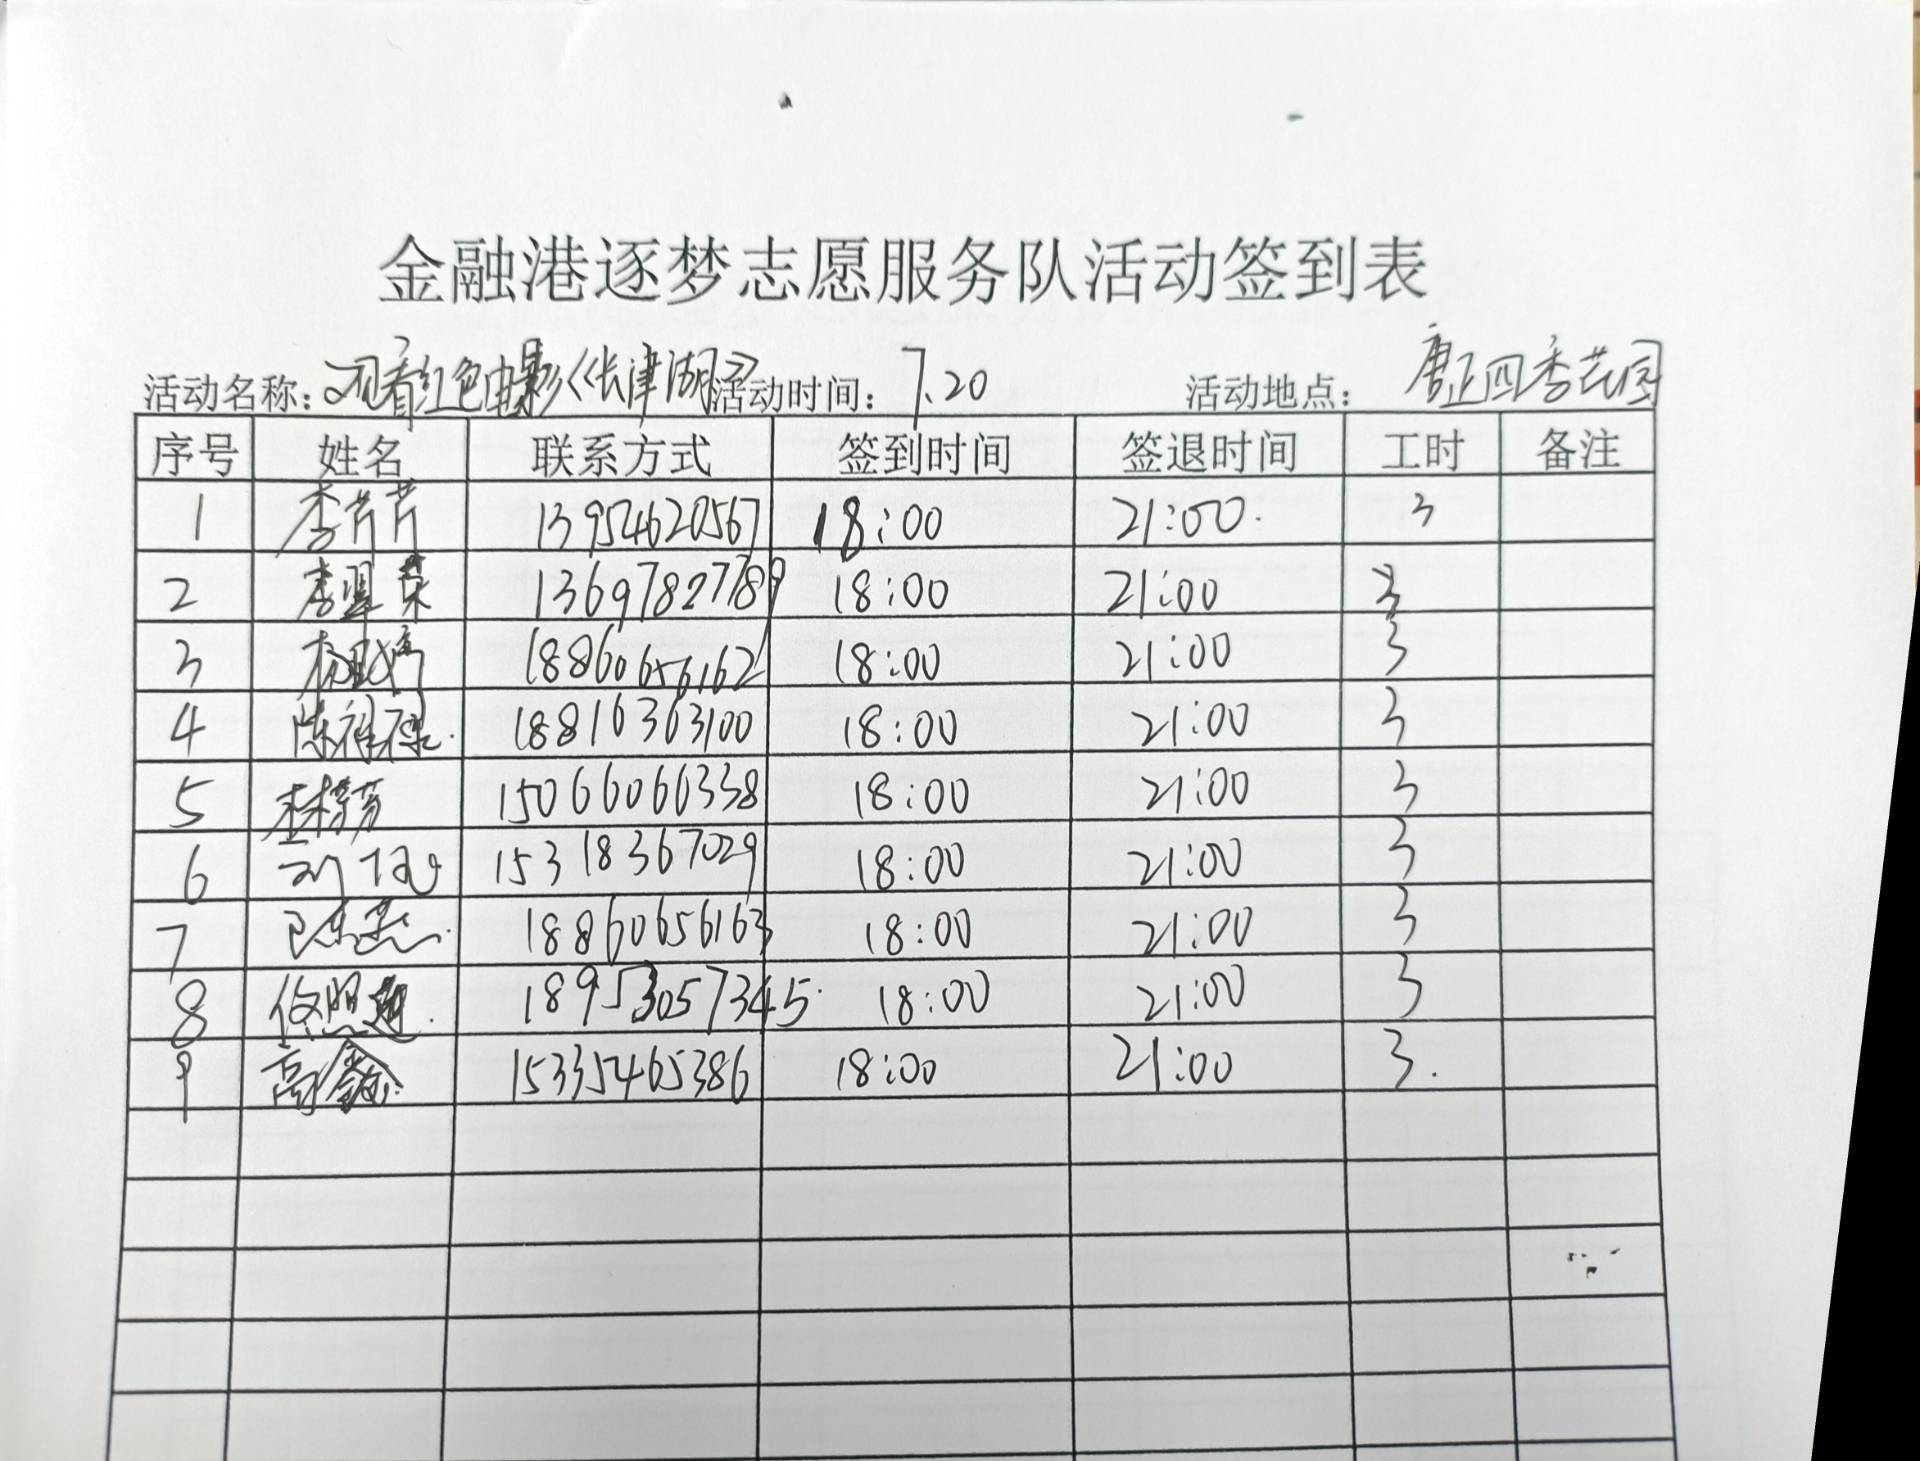 金融港逐梦志愿服务队活动签到表
活动名称：观看红色电影《长津湖》 活动时间：7.20 活动地点：唐正四季花园
序号 姓名 联系方式 签到时间 签退时间 工时 备注
1 李芹芹 13954620567 18:00 21:00 3
2 李翠荣 13697827789 18:00 21:00 3
3 18860656162 18:00 21:00 3
4 18816363100 18:00 21:00 3
5 15066066338 18:00 21:00 3
6 15318367029 18:00 21:00 3
7 18860656163 18:00 21:00 3
8 18953057345 18:00 21:00 3
9 高鑫 15335465386 18:00 21:00 3